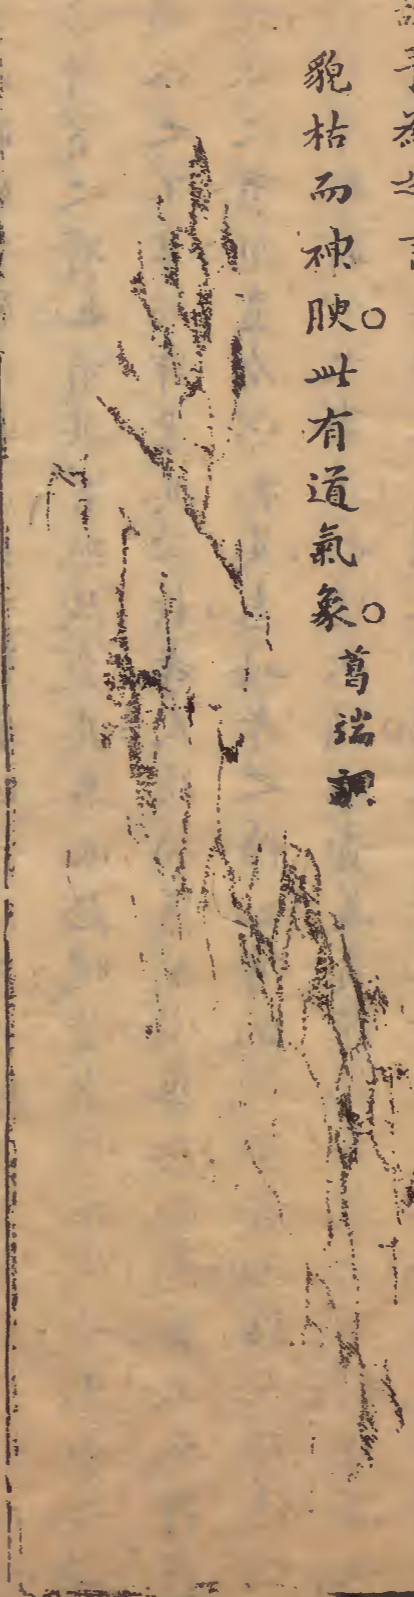 貌枯而神腴○此有道氣象○葛端調